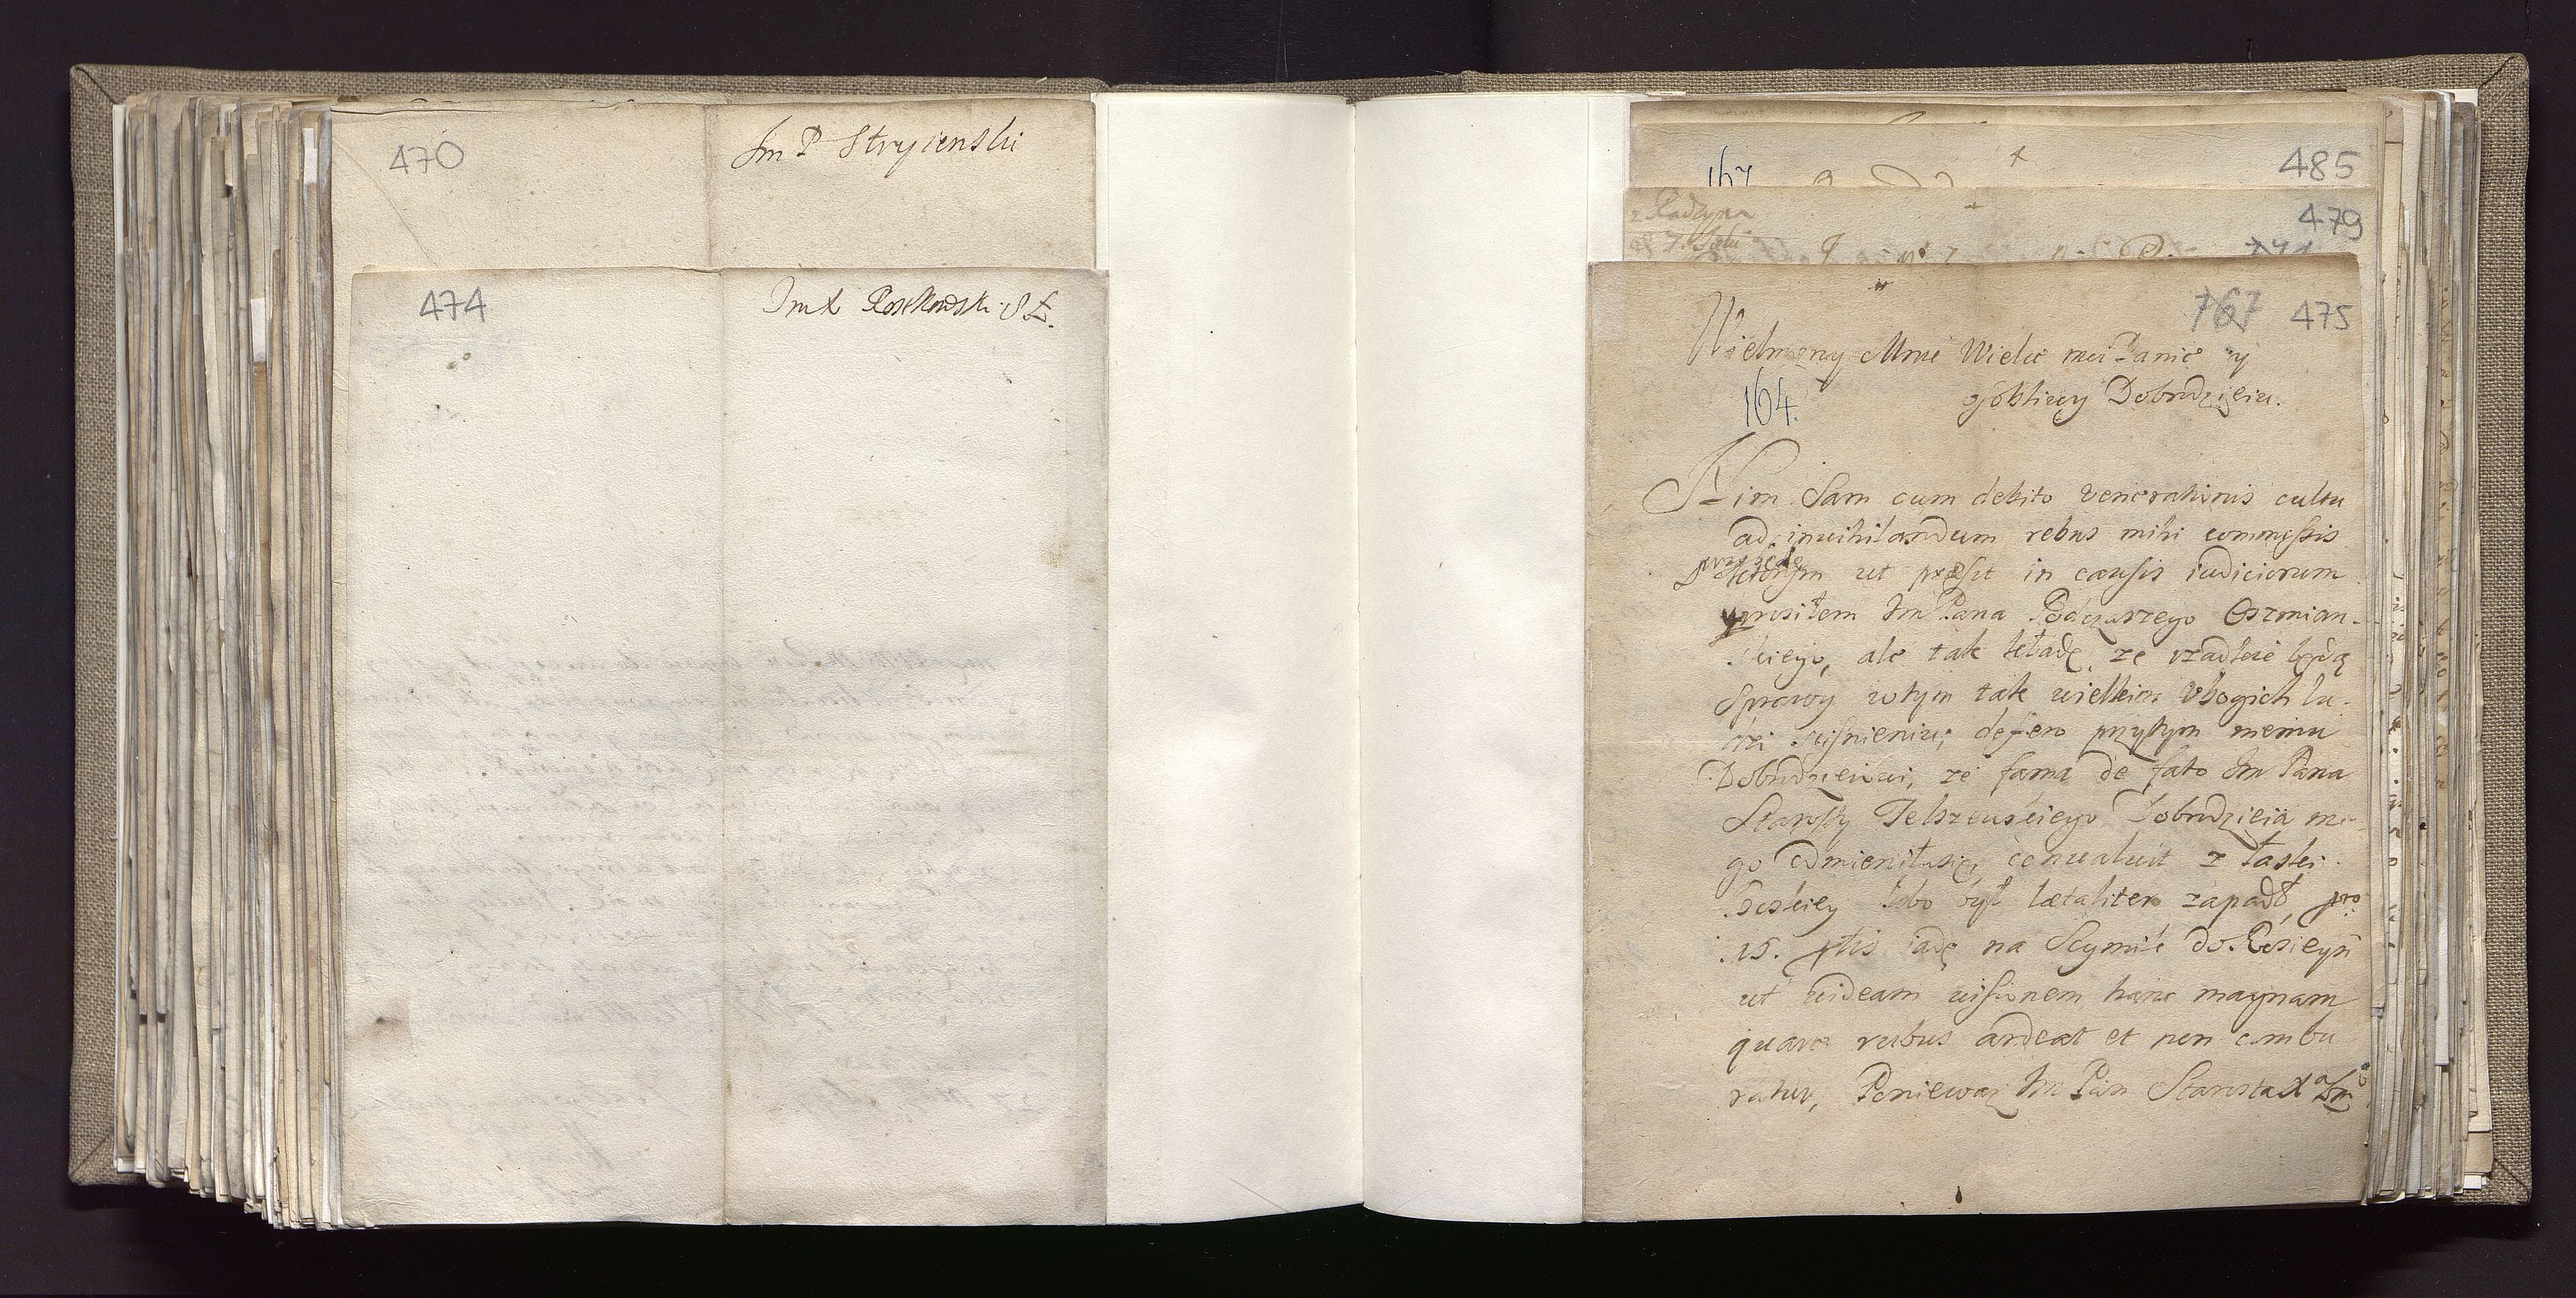 470
Jm P Stryienski
474
Jmx Roskowski S J.
167
485
z Radzynia
479
767 475
Wielmozny Mnie Wielce mci Panie y
osobliwy Dobrodzieiu.
164.
Nim Sam cum debito venerationis cultu
ad inuihilandum rebus mihi commissis
przyiadę
ut præsit in causis iudiciorum
uprosiłem Jm Pana Podczaszego Oszmian-
skiego, ale tak kładę, ze rzadkie będą
Sprawy w tym tak wielkim Vbogich lu-
dzi scisnieniu; defero przytym memu
Dobrodzieiowi, ze fama de fato Jm Pana
Starosty Telszewskiego Dobrodzieia me-
go odmieniła się, conualuit z łaski
Boskiey lubo był lætaliter zapadł, pro
15. ptis iadę na Seymik do Rosieyn
ut videam visionem hanc magnam
quare rubus ardeat et non combu
ratur, Poniewaz Jm Pan Starosta X Zm